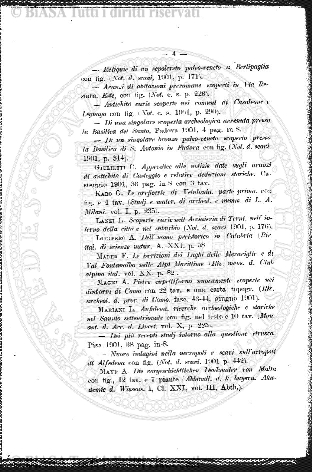 © BIASA Tutti i diritti riservati
— 4 —
— Reliquie di un sepolcreto paleo-veneto a Berlipaglia
con fig. (Not. d. scavi, 1901, p. 171).
— Avanzi di abitazioni preromane scoperti in Via Re-
stara, Este, con fig. (Not. c. s. p. 226).
— Antichità varie scoperte nei comuni di Casaleone e
Legnago con fig. (Not. c. s. 1901, p. 290).
— Di una singolare scoperta archeologica avvenuta presso
la Basilica del Santo, Padova 1901, 4 pag. in 8.
— Di un singolare bronzo paleo-veneto scoperto presso
la Basilica di S. Antonio in Padova con fig. (Not. d. scavi
1901, p. 314).
C. Appendice alle notizie date sugli avanzi
di antichità di Casteggio e relative deduzioni storiche. Ca-
steggio 1901, 36 pag. in 8 con 3 tav.
Karo G. Le oreficerie di Vetulonia, parte prima, con
fig. e 1 tav. (Studi e mater. di archeol. e numis. di L. A.
Milani, vol. I, p. 235).
Lanzi L. Scoperte varie nell'Acciaieria di Terni, nell'in-
terno della città e nel suburbio (Not. d. scavi 1901, p. 176).
A. Dell'uomo preistorico in Calabria (Riv.
ital. di scienze natur. A. XXI, p. 58
Mader F. Le iscrizioni dei Laghi delle Meraviglie e di
Val Fontanalba nelle Alpi Marittime (Riv. mens. d. Club
alpino ital. vol. XX, p. 82).
Magni A. Pietre cupelliformi nuovamente scoperte nei
dintorni di Como con 22 tav. e una carta topogr. (Riv.
archeol. d. prov. di Como, fasc. 43-44, giugno 1901).
Mariani L. Archeol. ricerche archeologiche e storiche
nel Sannio settentrionale con fig. nel testo e 10 tav. (Mon.
ant. d. Acc. d. Lincei, vol. X, p. 225).
— Dei più recenti studi intorno alla questione etrusca.
Pisa 1901, 38 pag. in-8.
— Nuove indagini nella necropoli e scavi nell'arcipoli
di Alfedena con fig. (Not. d. scavi, 1901 p. 442).
Mayr A. Die vorgeschichtlichen Denkmäler von Malta
con fig., 12 tav. e 7 piante (Abhandl. d. k. bayern. Aka-
demie d. Wissen. I, Cl. XXI, vol. III, Abth.).